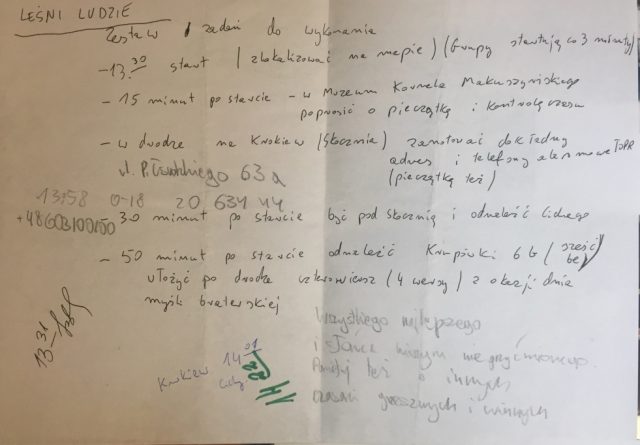 LEŚNI LUDZIE
Zestaw zadań do wykonania
- 13:30 start (zlokalizować na mapie) (Grupy startują co 3 minuty)
- 15 minut po starcie - w Muzeum Kornela Makuszyńskiego
poprosić o pieczątkę i kontrolę czasu
- w drodze na Krokiew (Skocznia) zanotować dokładny
adres i telefony alarmowe TOPR
(pieczątkę też)
ul. Piłsudskiego 63a
13:58 0-18 20 634 44
+48603100100
30 minut po starcie być pod skocznią i odnaleźć Cichego
- 50 minut po starcie odnaleźć Krupówki 6b (sześć be)
ułożyć po drodze czterowiersz (4 wersy) z okazji dnia
myśli braterskiej
13 31
Krokiew 14 01
Cichy
14 22
Wszystkiego najlepszego
i słońca
Pamiętaj też o innych